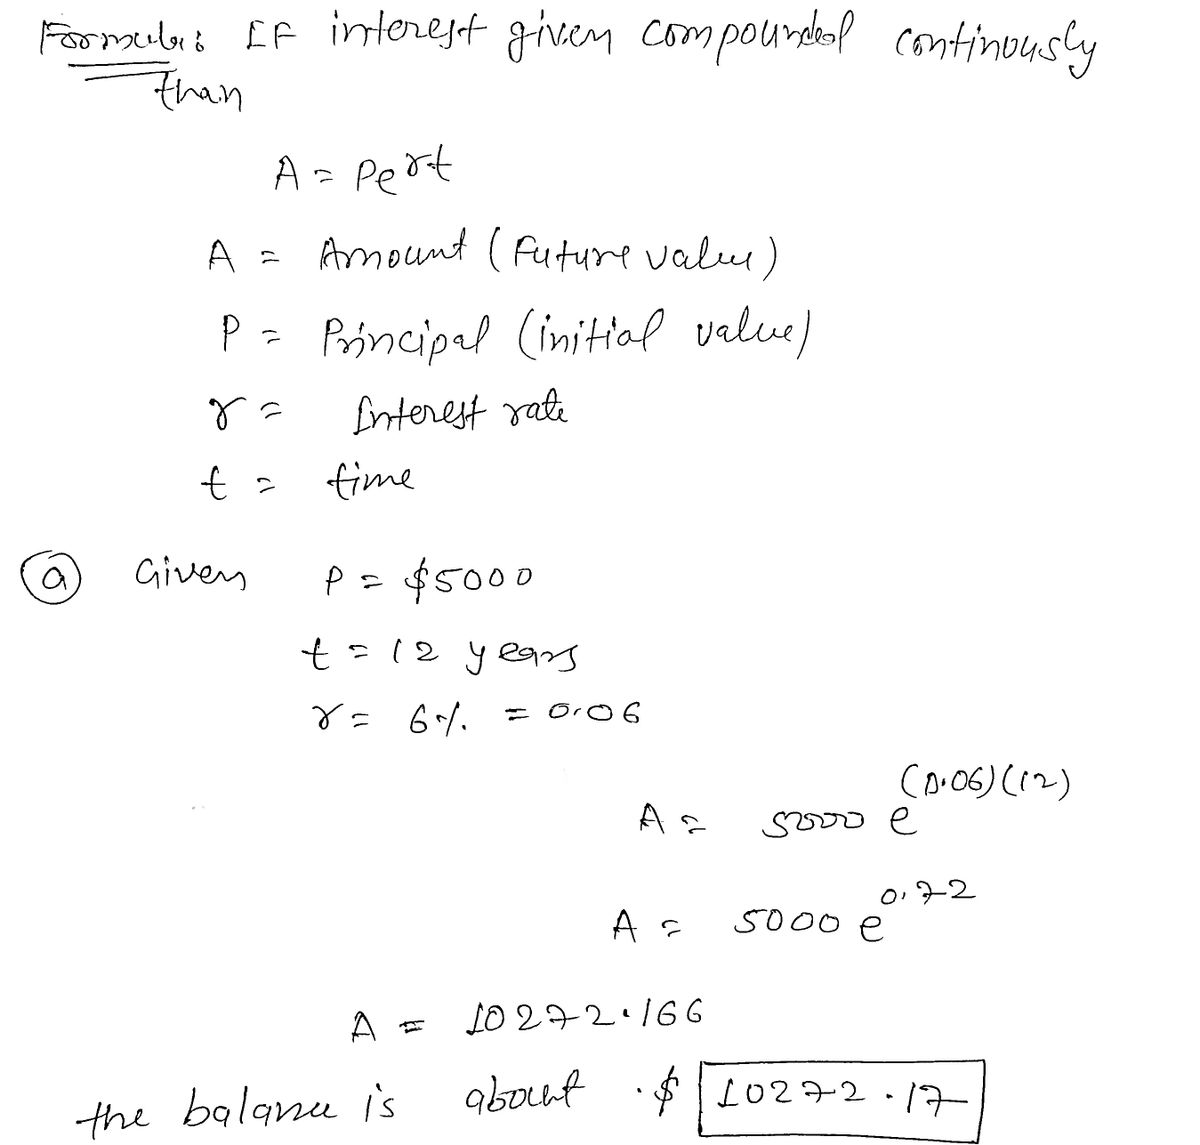 Formula: IF interest given compounded continously
than
A = Pe^rt
A = Amount (Future value)
P = Principal (initial value)
r = Interest rate
t = time
(a) Given P = $5000
t = 12 years
r = 6% = 0.06
A = 5000 e^(0.06)(12)
A = 5000 e^0.72
A = 10272.166
the balance is about $ 10272.17